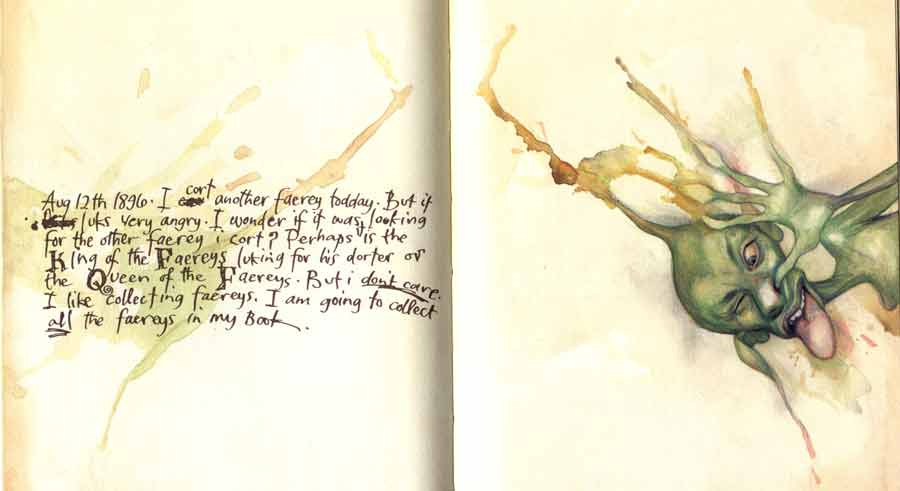 Aug 12th 1896. I cort another faerey todday. But it
luks very angry. I wonder if it was looking
for the other faerey i cort? Perhaps is the
King of the Faereys luking for his dorter or
the Queen of the Faereys. But i don't care.
I like collecting faereys. I am going to collect
all the faereys in my Book.